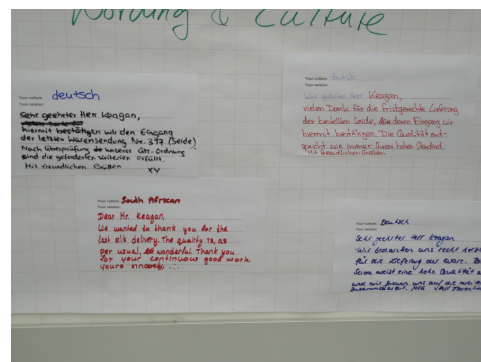 Wording & Culture
Your culture: deutsch
Your version:
Sehr geehrter Herr Keagan,
hiermit bestätigen wir den Eingang
der letzten Warensendung Nr. 317 (Seide)
Nach Überprüfung unserer
sind die geforderten Kriterien erfüllt.
Mit freundlichen Grüßen
XY
Your culture: deutsch
Your version:
Sehr geehrter Herr Keagan,
vielen Dank für die fristgerechte Lieferung
der bestellten Seide, deren Eingang wir
hiermit bestätigen. Die Qualität ent-
spricht wie immer Ihrem hohen Standard.
Mit freundlichen Grüßen
Your culture: South African
Your version:
Dear Mr. Keagan,
We wanted to thank you for the
last silk delivery. The quality is, as
per usual, wonderful. Thank you
for your continuous good work.
yours sincerely ...
Your culture: Deutsch
Your version:
Sehr geehrter Herr Keagan
Wir bedanken uns recht herzl
für die Lieferung der Ware. D
Seide weist eine hohe Qualität a
und wir freuen uns auf die weite
Zusammenarbeit. MfG